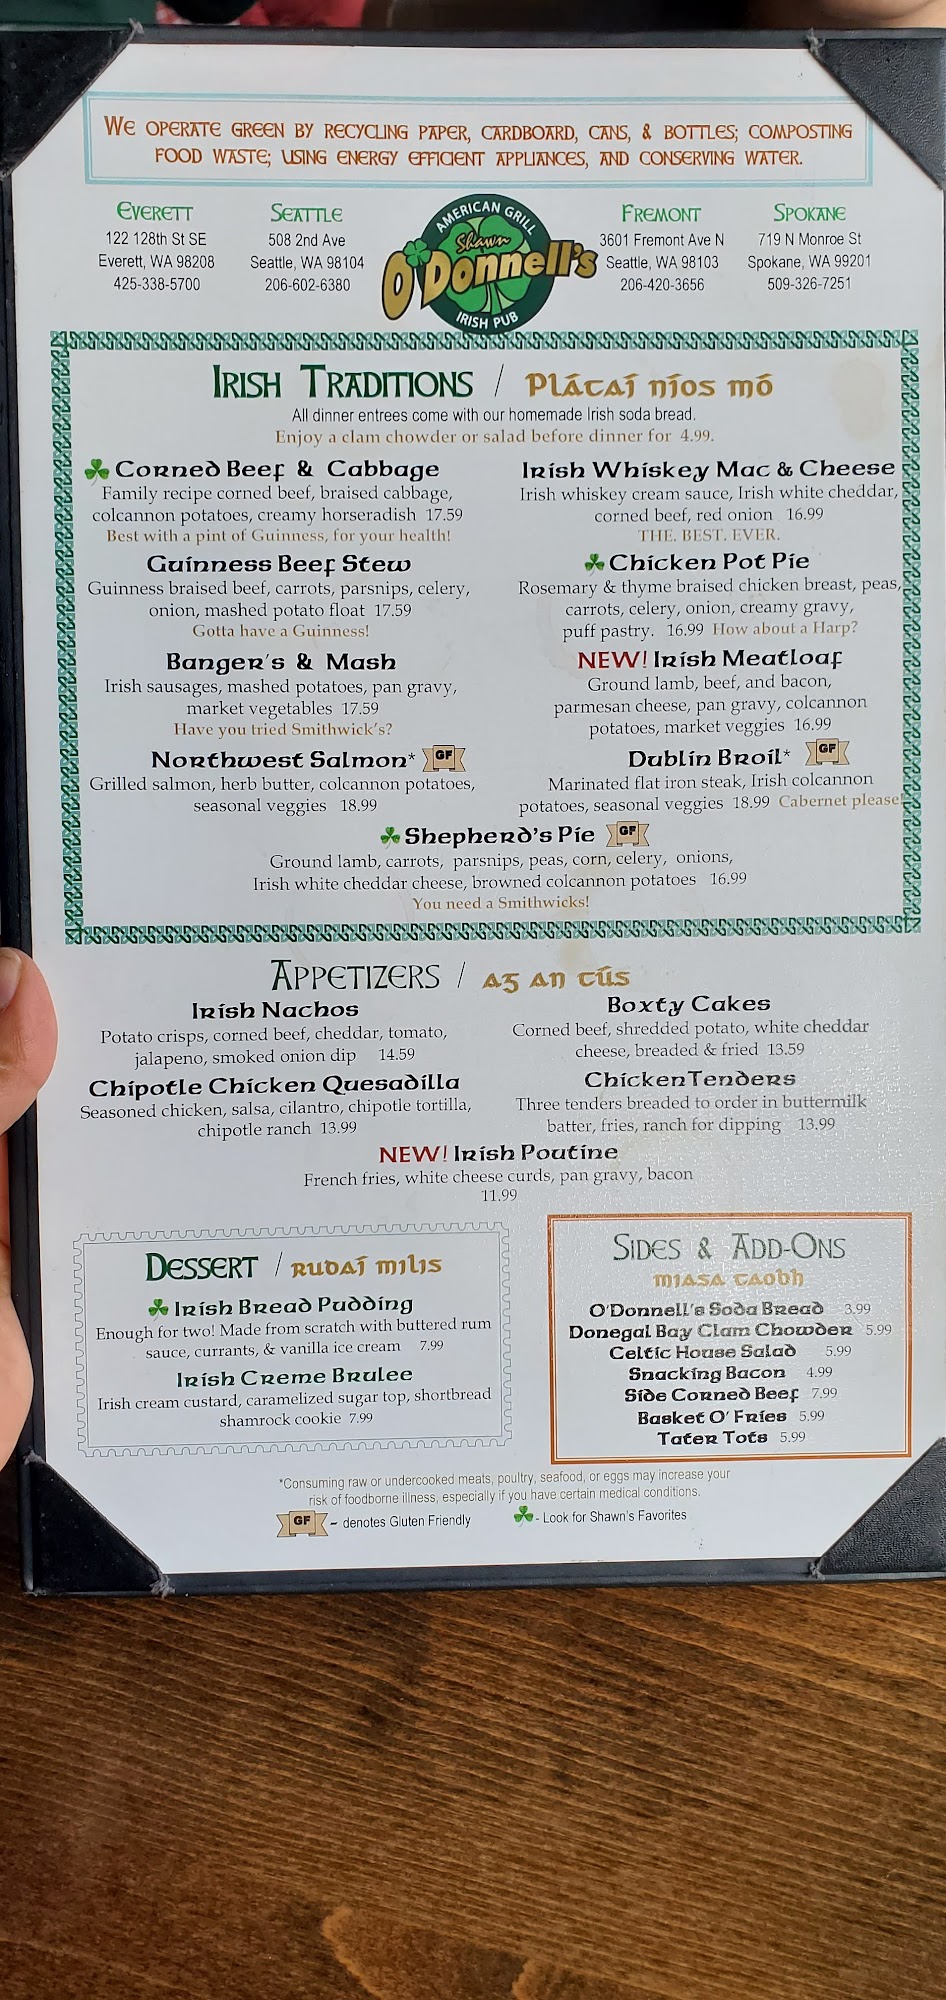 We operate green by recycling paper, cardboard, cans, & bottles; composting
food waste; using energy efficient appliances, and conserving water.
Everett
122 128th St SE
Everett, WA 98208
425-338-5700
Seattle
508 2nd Ave
Seattle, WA 98104
206-602-6380
AMERICAN GRILL
Shawn
O'Donnell's
IRISH PUB
Fremont
3601 Fremont Ave N
Seattle, WA 98103
206-420-3656
Spokane
719 N Monroe St
Spokane, WA 99201
509-326-7251
Irish Traditions / Plácaí níos mó
All dinner entrees come with our homemade Irish soda bread.
Enjoy a clam chowder or salad before dinner for 4.99.
Corned Beef & Cabbage
Family recipe corned beef, braised cabbage,
colcannon potatoes, creamy horseradish 17.59
Best with a pint of Guinness, for your health!
Guinness Beef Stew
Guinness braised beef, carrots, parsnips, celery,
onion, mashed potato float 17.59
Gotta have a Guinness!
Banger's & Mash
Irish sausages, mashed potatoes, pan gravy,
market vegetables 17.59
Have you tried Smithwick's?
Northwest Salmon* GF
Grilled salmon, herb butter, colcannon potatoes,
seasonal veggies 18.99
Irish Whiskey Mac & Cheese
Irish whiskey cream sauce, Irish white cheddar,
corned beef, red onion 16.99
THE. BEST. EVER.
Chicken Pot Pie
Rosemary & thyme braised chicken breast, peas,
carrots, celery, onion, creamy gravy,
puff pastry. 16.99 How about a Harp?
NEW! Irish Meatloaf
Ground lamb, beef, and bacon,
parmesan cheese, pan gravy, colcannon
potatoes, market veggies 16.99
Dublin Broil* GF
Marinated flat iron steak, Irish colcannon
potatoes, seasonal veggies 18.99 Cabernet please!
Shepherd's Pie GF
Ground lamb, carrots, parsnips, peas, corn, celery, onions,
Irish white cheddar cheese, browned colcannon potatoes 16.99
You need a Smithwicks!
Appetizers / ag an cús
Irish Nachos
Potato crisps, corned beef, cheddar, tomato,
jalapeno, smoked onion dip 14.59
Chipotle Chicken Quesadilla
Seasoned chicken, salsa, cilantro, chipotle tortilla,
chipotle ranch 13.99
Boxty Cakes
Corned beef, shredded potato, white cheddar
cheese, breaded & fried 13.59
Chicken Tenders
Three tenders breaded to order in buttermilk
batter, fries, ranch for dipping 13.99
NEW! Irish Poutine
French fries, white cheese curds, pan gravy, bacon
11.99
Dessert / rudaí milis
Irish Bread Pudding
Enough for two! Made from scratch with buttered rum
sauce, currants, & vanilla ice cream 7.99
Irish Creme Brulee
Irish cream custard, caramelized sugar top, shortbread
shamrock cookie 7.99
Sides & Add-Ons
miasa taobh
O'Donnell's Soda Bread 3.99
Donegal Bay Clam Chowder 5.99
Celtic House Salad 5.99
Snacking Bacon 4.99
Side Corned Beef 7.99
Basket O' Fries 5.99
Tater Tots 5.99
*Consuming raw or undercooked meats, poultry, seafood, or eggs may increase your
risk of foodborne illness, especially if you have certain medical conditions.
GF ~ denotes Gluten Friendly
- Look for Shawn's Favorites